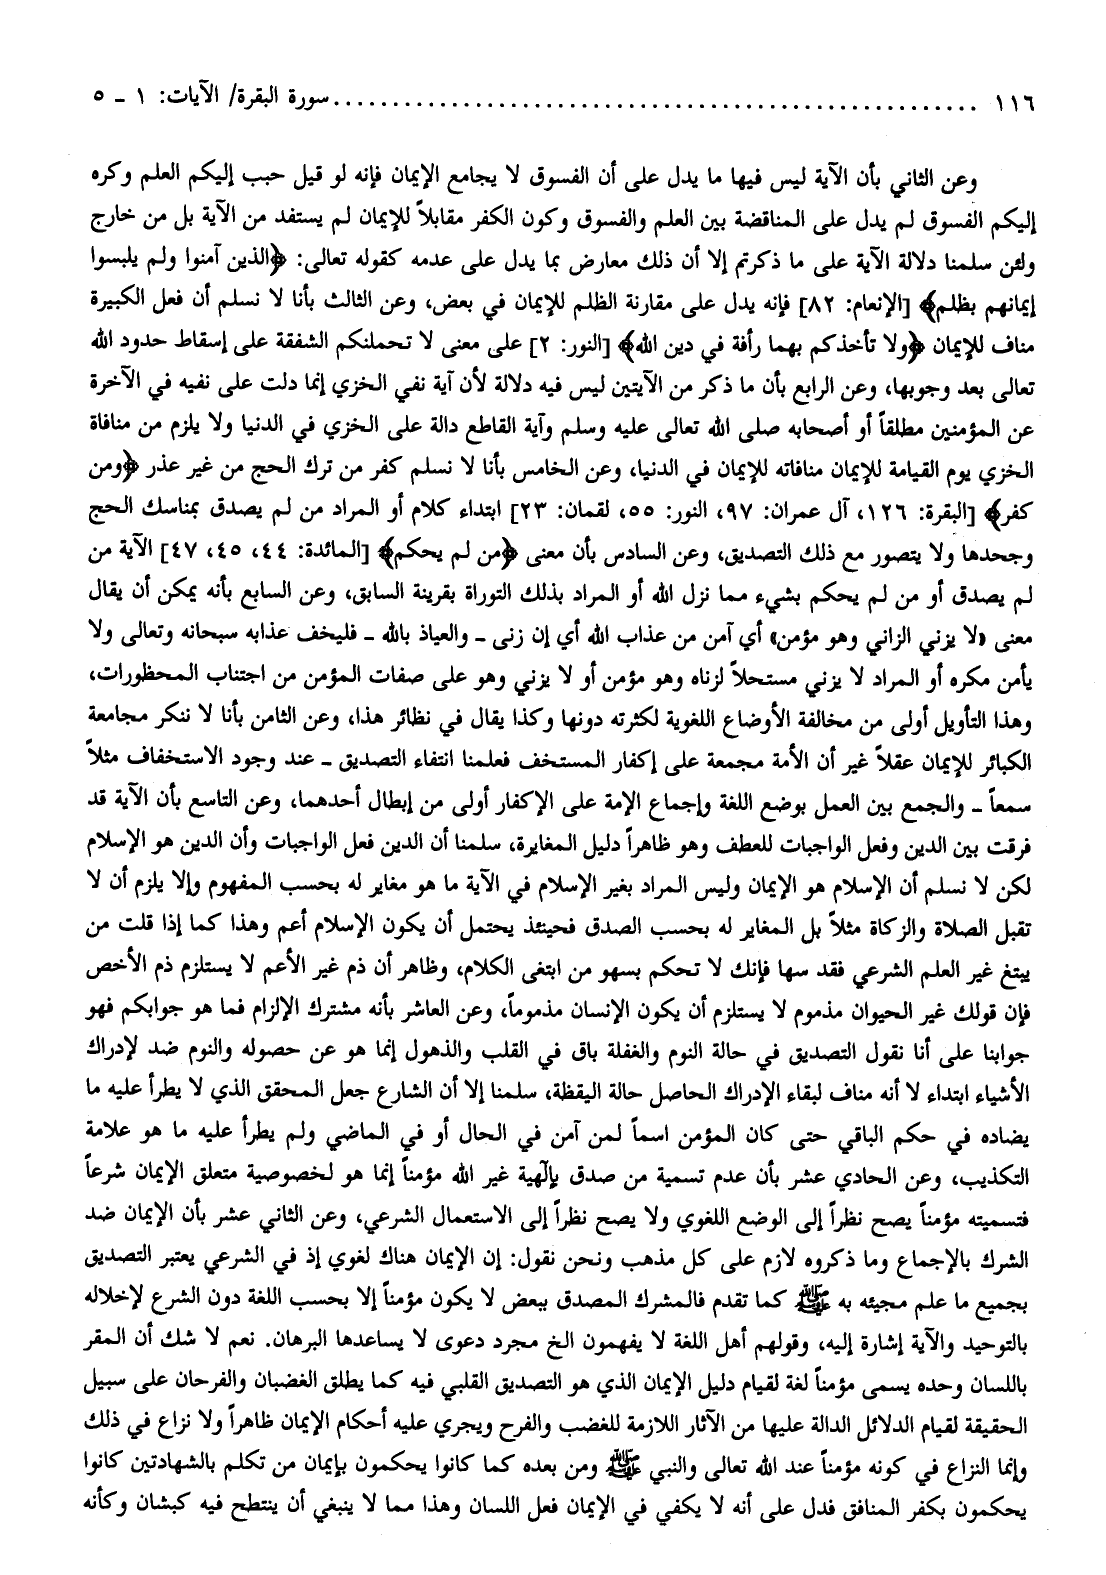 ١١٦ ........................................................ سورة البقرة/ الآيات: ١ ـ ٥
وعن الثاني بأن الآية ليس فيها ما يدل على أن الفسوق لا يجامع الإيمان فإنه لو قيل حبب إليكم العلم وكره
إليكم الفسوق لم يدل على المناقضة بين العلم والفسوق وكون الكفر مقابلاً للإيمان لم يستفد من الآية بل من خارج
ولئن سلمنا دلالة الآية على ما ذكرتم إلا أن ذلك معارض بما يدل على عدمه كقوله تعالى: ﴿الذين آمنوا ولم يلبسوا
إيمانهم بظلم﴾ [الإنعام: ٨٢] فإنه يدل على مقارنة الظلم للإيمان في بعض، وعن الثالث بأنا لا نسلم أن فعل الكبيرة
مناف للإيمان ﴿ولا تأخذكم بهما رأفة في دين الله﴾ [النور: ٢] على معنى لا تحملنكم الشفقة على إسقاط حدود الله
تعالى بعد وجوبها، وعن الرابع بأن ما ذكر من الآيتين ليس فيه دلالة لأن آية نفي الخزي إنما دلت على نفيه في الآخرة
عن المؤمنين مطلقاً أو أصحابه صلى الله تعالى عليه وسلم وآية القاطع دالة على الخزي في الدنيا ولا يلزم من منافاة
الخزي يوم القيامة للإيمان منافاته للإيمان في الدنيا، وعن الخامس بأنا لا نسلم كفر من ترك الحج من غير عذر ﴿ومن
كفر﴾ [البقرة: ١٢٦، آل عمران: ٩٧، النور: ٥٥، لقمان: ٢٣] ابتداء كلام أو المراد من لم يصدق بمناسك الحج
وجحدها ولا يتصور مع ذلك التصديق، وعن السادس بأن معنى ﴿من لم يحكم﴾ [المائدة: ٤٤، ٤٥، ٤٧] الآية من
لم يصدق أو من لم يحكم بشيء مما نزل الله أو المراد بذلك التوراة بقرينة السابق، وعن السابع بأنه يمكن أن يقال
معنى «لا يزني الزاني وهو مؤمن» أي آمن من عذاب الله أي إن زنى ـ والعياذ بالله ـ فليخف عذابه سبحانه وتعالى ولا
يأمن مكره أو المراد لا يزني مستحلاً لزناه وهو مؤمن أو لا يزني وهو على صفات المؤمن من اجتناب المحظورات،
وهذا التأويل أولى من مخالفة الأوضاع اللغوية لكثرته دونها وكذا يقال في نظائر هذا، وعن الثامن بأنا لا ننكر مجامعة
الكبائر للإيمان عقلاً غير أن الأمة مجمعة على إكفار المستخف فعلمنا انتفاء التصديق ـ عند وجود الاستخفاف مثلاً
سمعاً ـ والجمع بين العمل بوضع اللغة وإجماع الإمة على الإكفار أولى من إبطال أحدهما، وعن التاسع بأن الآية قد
فرقت بين الدين وفعل الواجبات للعطف وهو ظاهراً دليل المغايرة، سلمنا أن الدين فعل الواجبات وأن الدين هو الإسلام
لكن لا نسلم أن الإسلام هو الإيمان وليس المراد بغير الإسلام في الآية ما هو مغاير له بحسب المفهوم وإلا يلزم أن لا
تقبل الصلاة والزكاة مثلاً بل المغاير له بحسب الصدق فحينئذ يحتمل أن يكون الإسلام أعم وهذا كما إذا قلت من
يبتغ غير العلم الشرعي فقد سها فإنك لا تحكم بسهو من ابتغى الكلام، وظاهر أن ذم غير الأعم لا يستلزم ذم الأخص
فإن قولك غير الحيوان مذموم لا يستلزم أن يكون الإنسان مذموماً، وعن العاشر بأنه مشترك الإلزام فما هو جوابكم فهو
جوابنا على أنا نقول التصديق في حالة النوم والغفلة باق في القلب والذهول إنما هو عن حصوله والنوم ضد لإدراك
الأشياء ابتداء لا أنه مناف لبقاء الإدراك الحاصل حالة اليقظة، سلمنا إلا أن الشارع جعل المحقق الذي لا يطرأ عليه ما
يضاده في حكم الباقي حتى كان المؤمن اسماً لمن آمن في الحال أو في الماضي ولم يطرأ عليه ما هو علامة
التكذيب، وعن الحادي عشر بأن عدم تسمية من صدق بإلٰهية غير الله مؤمناً إنما هو لخصوصية متعلق الإيمان شرعاً
فتسميته مؤمناً يصح نظراً إلى الوضع اللغوي ولا يصح نظراً إلى الاستعمال الشرعي، وعن الثاني عشر بأن الإيمان ضد
الشرك بالإجماع وما ذكروه لازم على كل مذهب ونحن نقول: إن الإيمان هناك لغوي إذ في الشرعي يعتبر التصديق
بجميع ما علم مجيئه به ﷺ كما تقدم فالمشرك المصدق ببعض لا يكون مؤمناً إلا بحسب اللغة دون الشرع لإخلاله
بالتوحيد والآية إشارة إليه، وقولهم أهل اللغة لا يفهمون الخ مجرد دعوى لا يساعدها البرهان. نعم لا شك أن المقر
باللسان وحده يسمى مؤمناً لغة لقيام دليل الإيمان الذي هو التصديق القلبي فيه كما يطلق الغضبان والفرحان على سبيل
الحقيقة لقيام الدلائل الدالة عليها من الآثار اللازمة للغضب والفرح ويجري عليه أحكام الإيمان ظاهراً ولا نزاع في ذلك
وإنما النزاع في كونه مؤمناً عند الله تعالى والنبي ﷺ ومن بعده كما كانوا يحكمون بإيمان من تكلم بالشهادتين كانوا
يحكمون بكفر المنافق فدل على أنه لا يكفي في الإيمان فعل اللسان وهذا مما لا ينبغي أن ينتطح فيه كبشان وكأنه